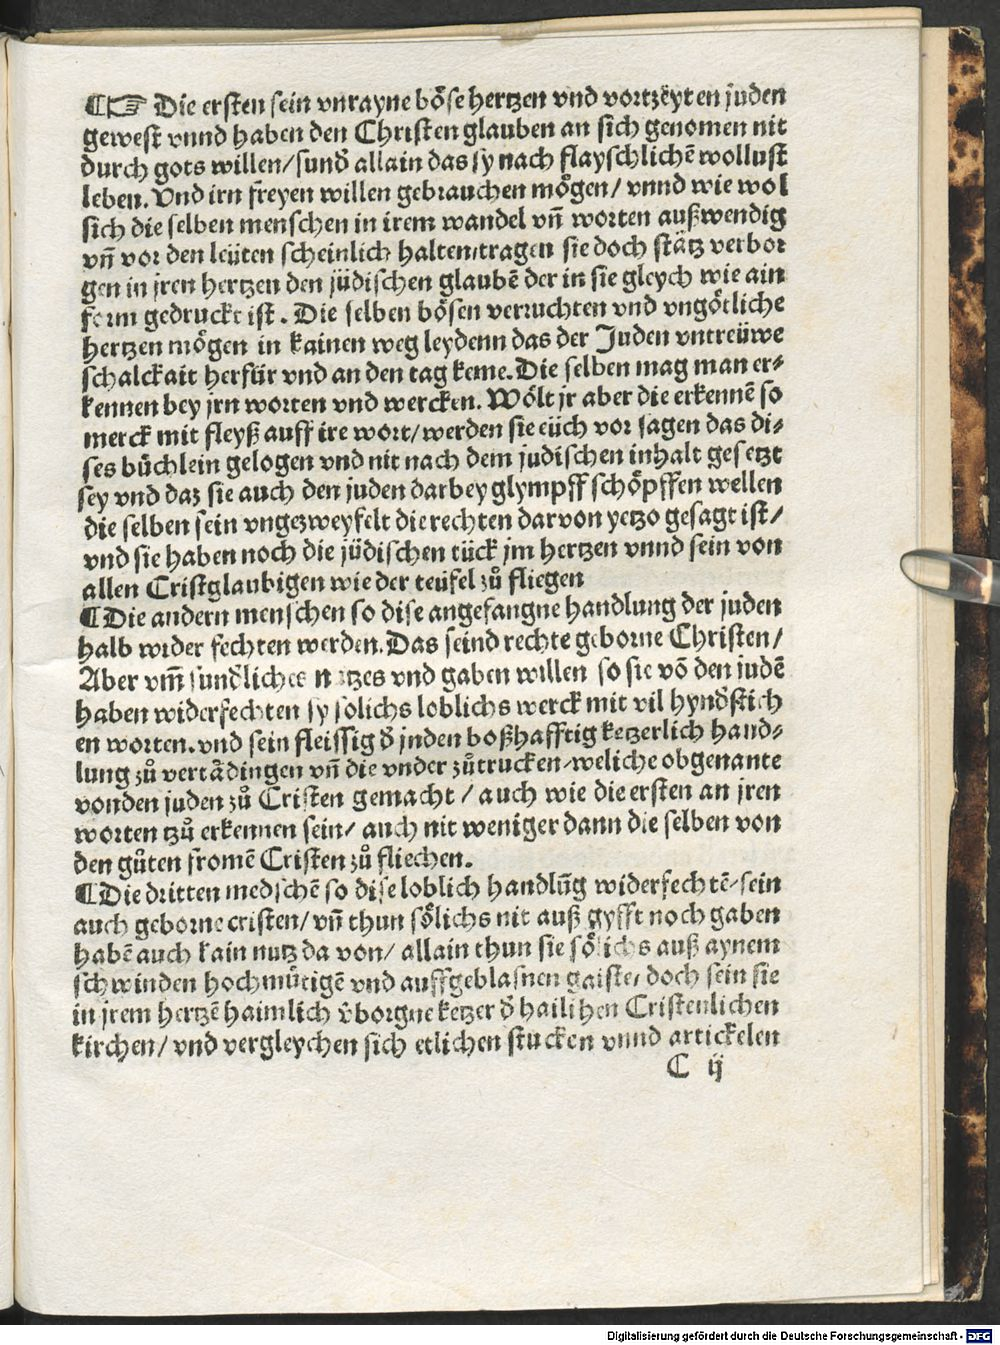 ¶☞ Die ersten sein vnrayne böse hertzen vnd vortzëyten juden
gewest vnnd haben den Christen glauben an sich genomen nit
durch gots willen/ sund̄ allain das sy nach flayschlichē wollust
leben. Vnd irn freyen willen gebrauchen mögen/ vnnd wie wol
sich die selben menschen in irem wandel vn̄ worten außwendig
vn̄ vor den leüten scheinlich halten/tragen sie doch stätz verbor
gen in jren hertzen den jüdischen glaubē der in sie gleych wie ain
form gedruckt ist. Die selben bösen verruchten vnd vngötliche
hertzen mögen in kainen weg leydenn das der Juden vntreüwe
schalckait herfür vnd an den tag keme. Die selben mag man er-
kennen bey jrn worten vnd wercken. Wölt jr aber die erkennē so
merck mit fleyß auff ire wort/ werden sie eüch vor sagen das di-
ses büchlein gelogen vnd nit nach dem judischen inhalt gesetzt
sey vnd daz sie auch den juden darbey glympff schöpffen wellen
die selben sein vngezweyfelt die rechten darvon yetzo gesagt ist/
vnd sie haben noch die jüdischen tück jm hertzen vnnd sein von
allen Cristglaubigen wie der teüfel zů fliegen
¶Die andern menschen so dise angefangne handlung der juden
halb wider fechten werden. Das seind rechte geborne Christen/
Aber vm̄ sund̄liches nutzes vnd gaben willen so sie vō den judē
haben widerfechten sy solichs loblichs werck mit vil hynd̄stich
en worten. vnd sein fleissig d̄ juden boßhafftig ketzerlich hand-
lung zů vertädingen vn̄ die vnder zůtrucken/weliche obgenante
vonden juden zů Cristen gemacht / auch wie die ersten an jren
worten tzů erkennen sein/ auch nit weniger dann die selben von
den gůten fromē Cristen zů fliechen.
¶Die dritten medschē so dise loblich handlūg widerfechtē/sein
auch geborne cristen/ vn̄ thun sölichs nit auß gyfft noch gaben
habē auch kain nutz da von/ allain thun sie sölichs auß aynem
schwinden hochmůtigē vnd auffgeblasnen gaiste/ doch sein sie
in jrem hertzē haimlich v̄borgne ketzer d̄ hailihen Cristenlichen
kirchen/ vnd vergleychen sich etlichen stucken vnnd artickelen
C ij
Digitalisierung gefördert durch die Deutsche Forschungsgemeinschaft - DFG